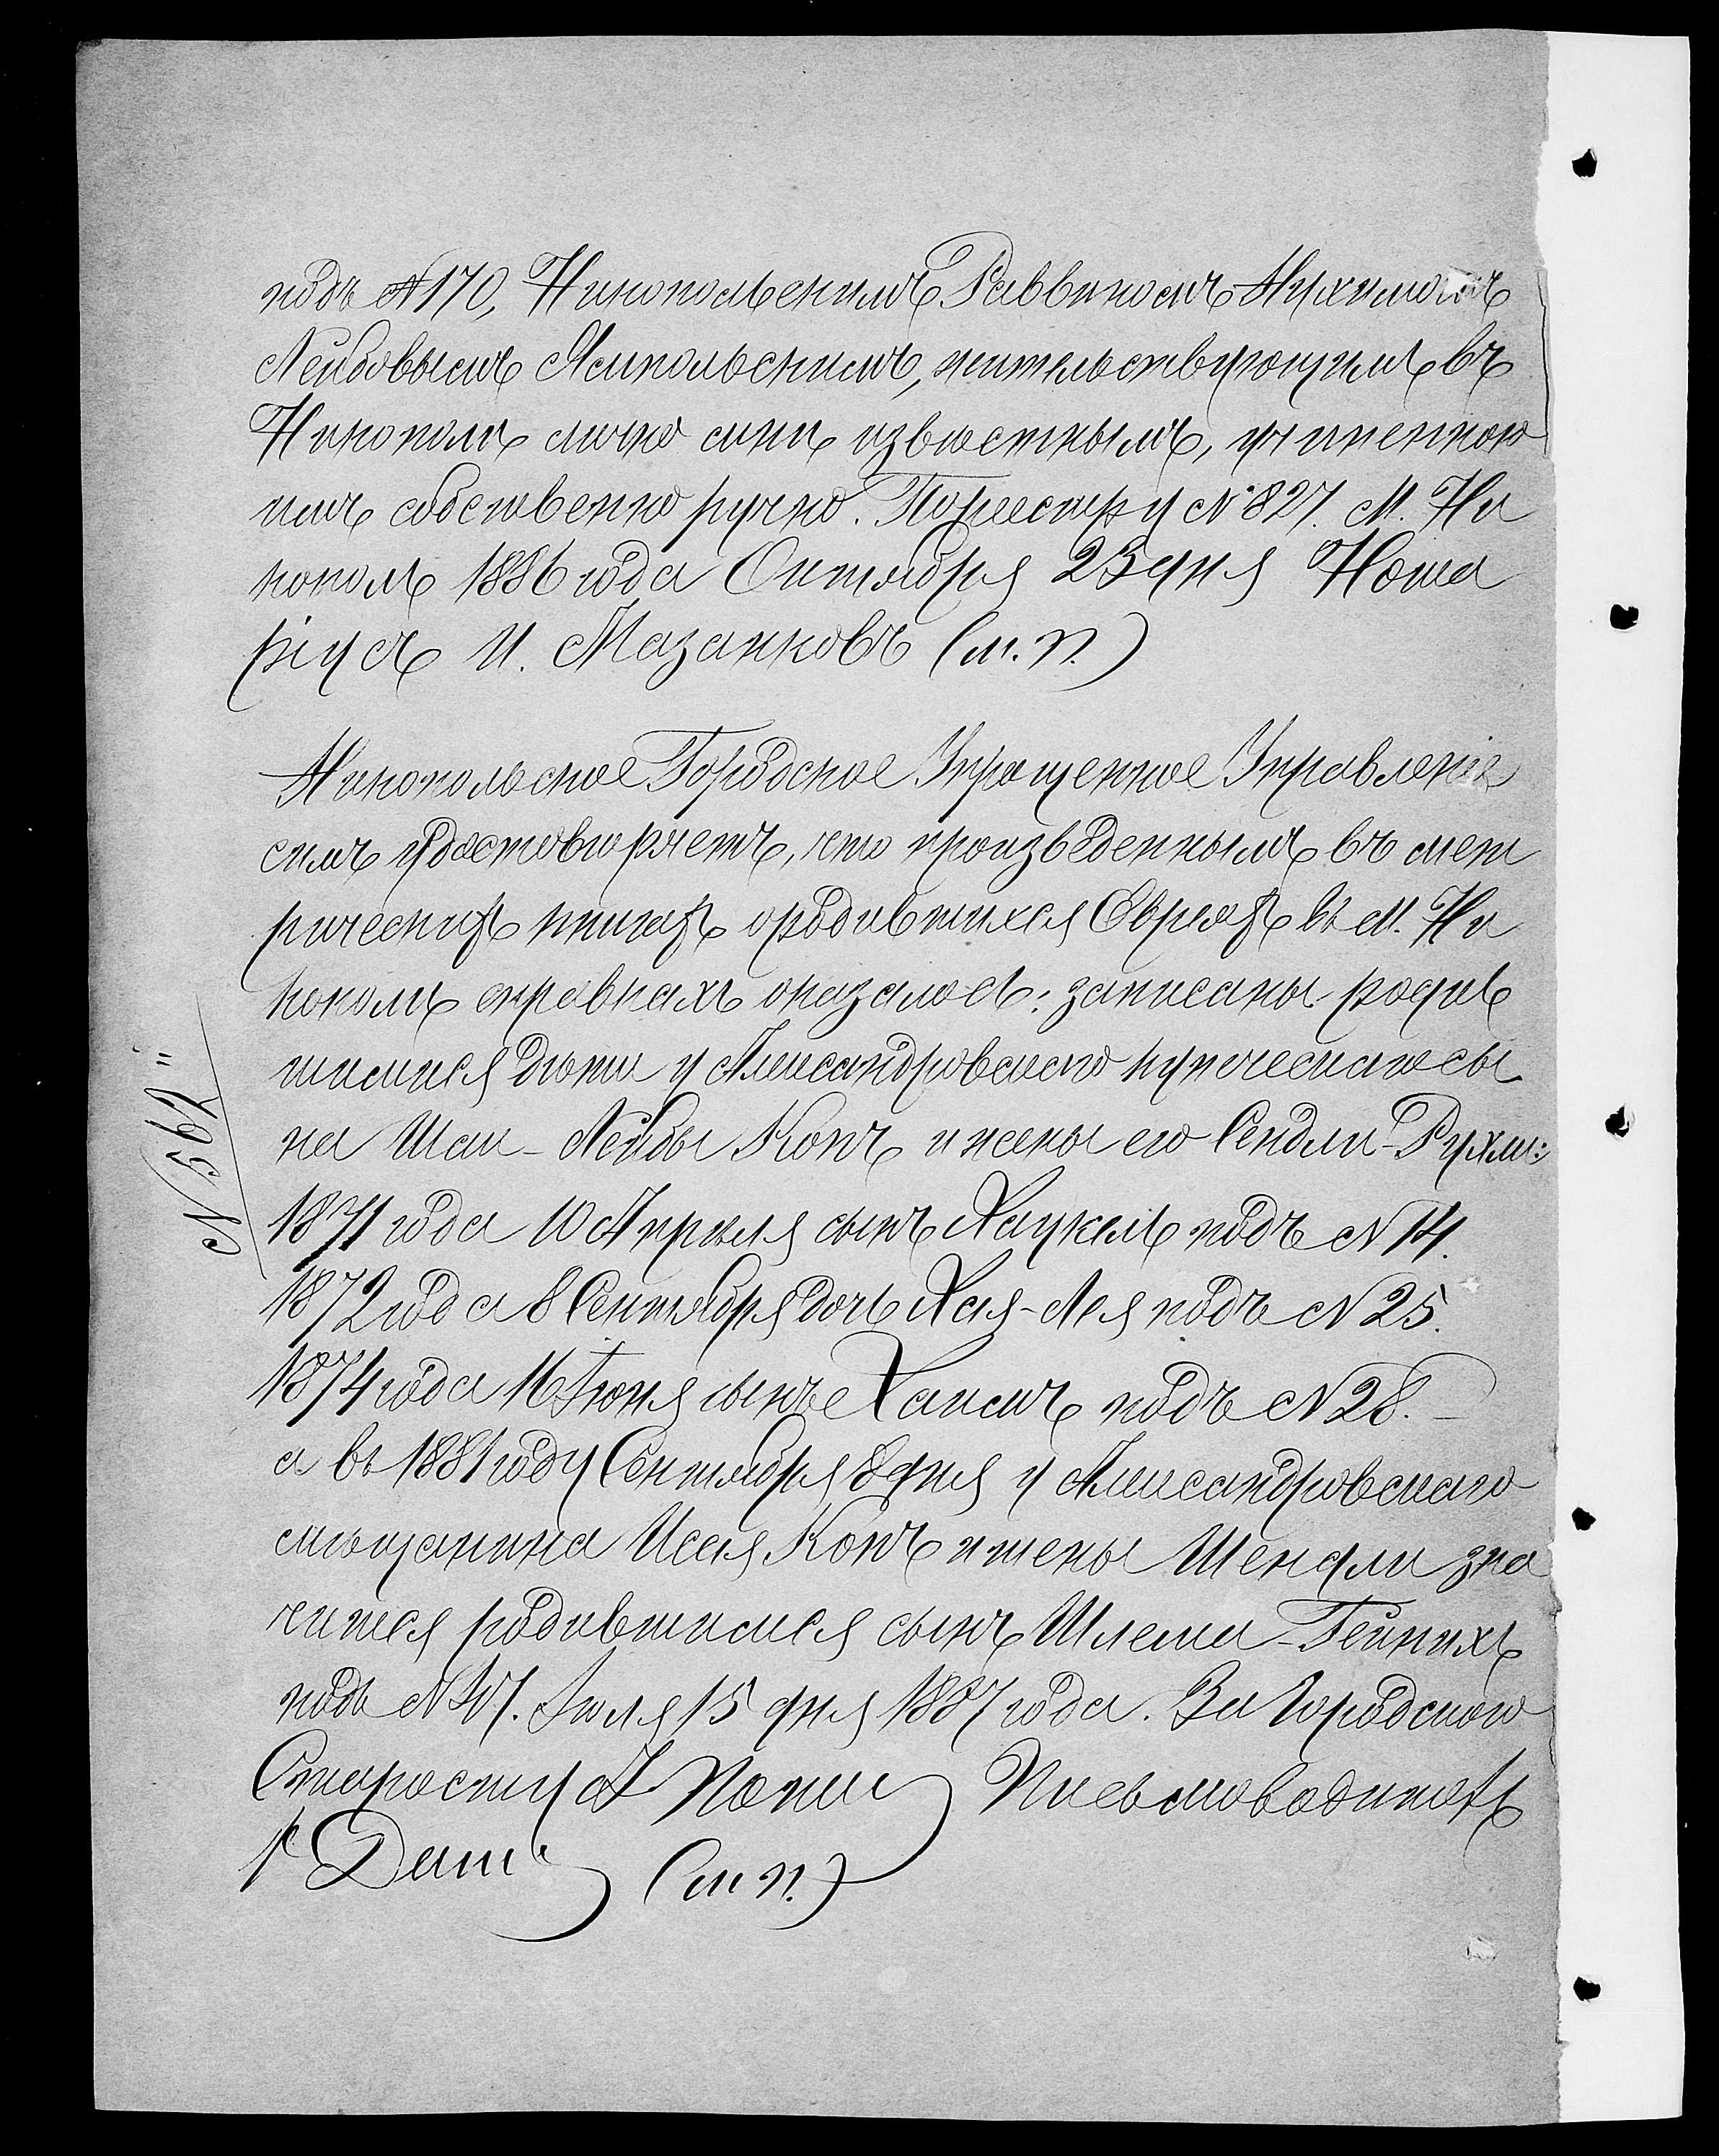 подъ № 170, Никопольскимъ Раввиномъ Нухимомъ
Лейбовымъ Ямпольскимъ, жительствующимъ въ
Никополѣ лично мнѣ извѣстнымъ, учиненною
имъ собственно ручно. Пореестру № 827. М. Ни
кополь 1886 года Октября 23 дня Нота
ріусъ И. Мазанковъ (м. п.)
Никопольское Городское Упрощенное Управленіе
симъ удостовѣряетъ, что произведенными въ мет
рическихъ книгахъ о родившихся Евреяхъ въ М. Ни
кополѣ справкахъ оказалось: записаны родив
шимися дѣти у Александровскаго купеческаго сы
на Шаи-Лейбы Конъ и жены его Сендли-Рухли:
1871 года 10 Апрѣля сынъ Хацкель подъ № 14.
1872 года 8 Сентября дочь Хая-Лея подъ № 25.
1874 года 16 Іюня сынъ Хаимъ подъ № 28.
а въ 1881 году Сентября 8 дня у Александровскаго
мѣщанина Исая Конъ и жены Шендли зна
чится родившимся сынъ Шлема-Гейнихъ
подъ № 47. Іюля 15 дня 1887 года. За Городского
Старосту Письмоводитель
(м. п.)
№ 567"